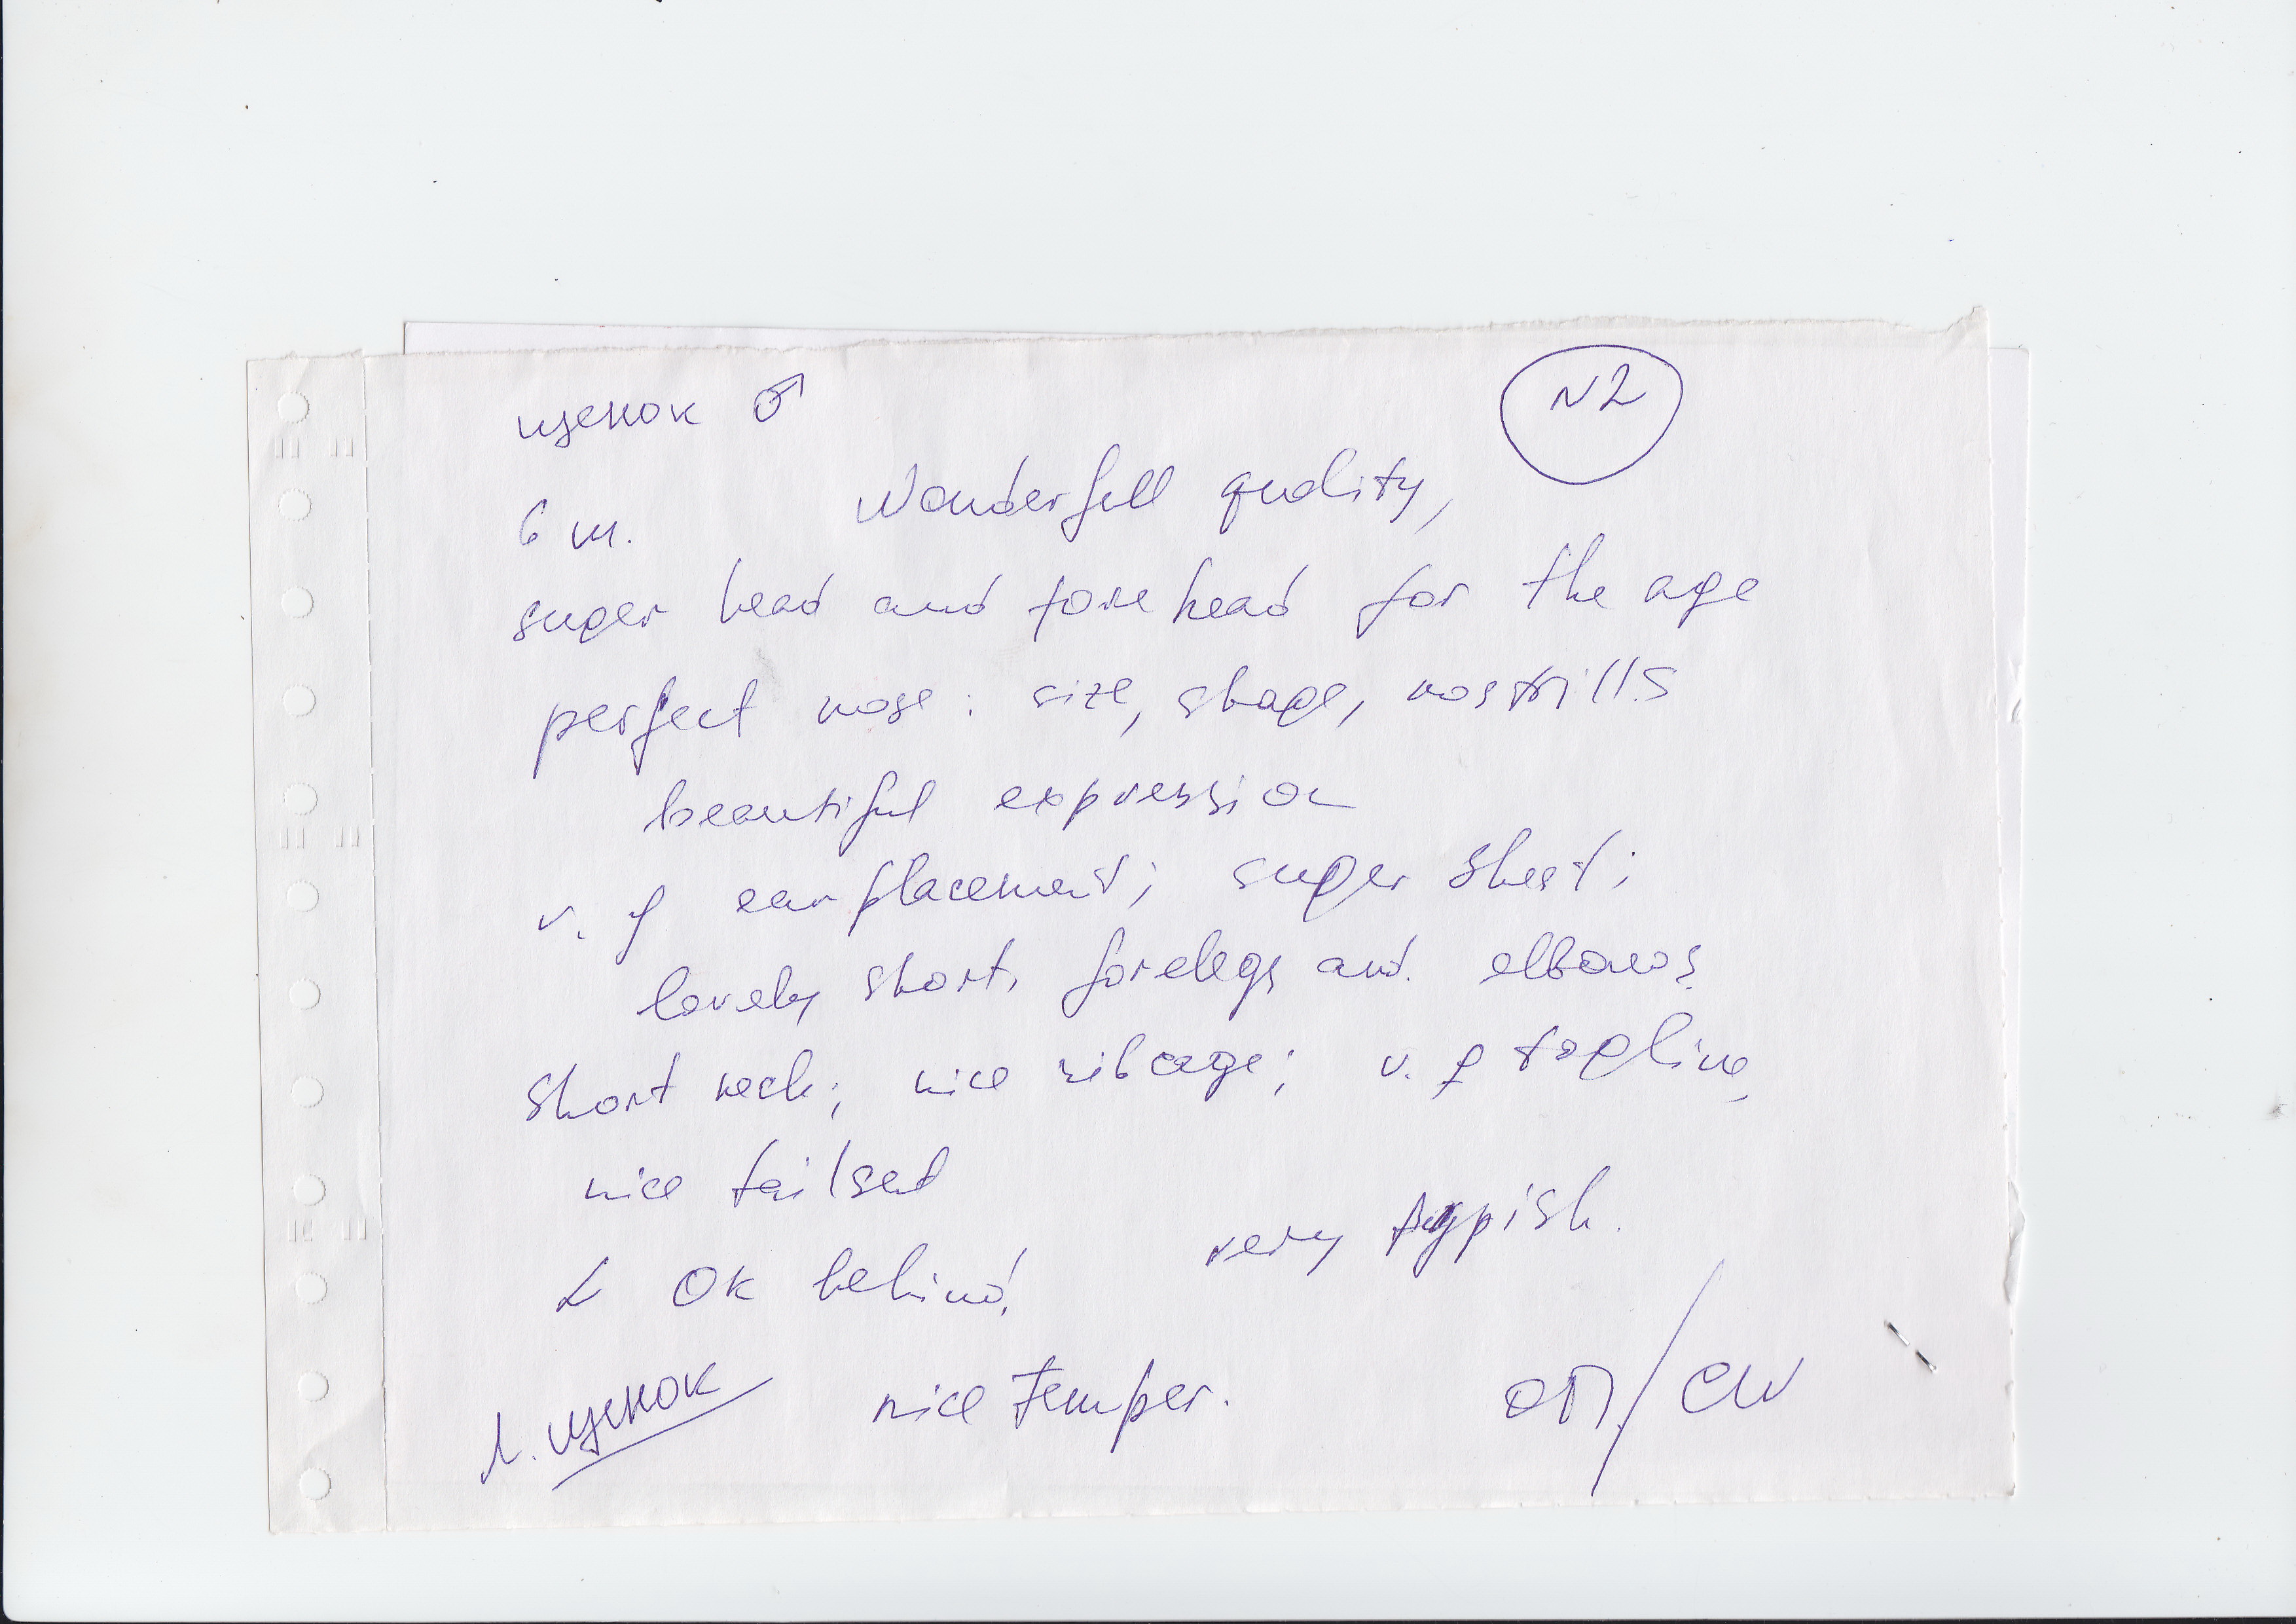 щенок ♂
N2
6 m. Wonderfull quality,
super head and forehead for the age
perfect nose: size, shape, nostrills
beautiful expression
v. g earplacement; super
lovely short, forelegs and elbows
short neck; nice ribcage; v. g topline,
nice tailset
very typish.
OK behind!
л. щенок nice temper.
ОП/CW